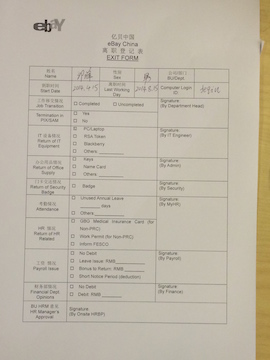 ebay
亿贝中国
eBay China
离 职 登 记 表
EXIT FORM
姓名
Name
性别
Sex
公司/部门
BU/Dept.
Start Date
2014.4.15
Last Working
Day
Computer Login
Job Transition
□ Completed □ Uncompleted
Signature
(By Department Head)
Termination in
□ Yes
□ No
Return of IT
Equipment
□ PC/Laptop
□ RSA Token
□ Blackberry
□ Others
Signature
(By IT Engineer)
Return of Office
Supply
□ Keys
□ Name Card
□ Others
Signature
(By Admin)
Return of Security
Badge
□ Badge
Signature
(By Security)
Attendance
□ Unused Annual Leave
days
□ Others
Signature
(By MyHR)
Return of HR
Related
□ GBG Medical Insurance Card (for
Non-PRC)
□ Work Permit (for Non-PRC)
□ Inform FESCO
Payroll Issue
□ No Debt
□ Leave Issue: RMB
□ Bonus to Return: RMB
□ Short Notice Period (deduction)
Signature
(By Payroll)
Financial Dept
Opinions
□ No Debt
□ Debt: RMB
Signature
(By Finance)
HR Manager's
Approval
Signature
(By Onsite HRBP)